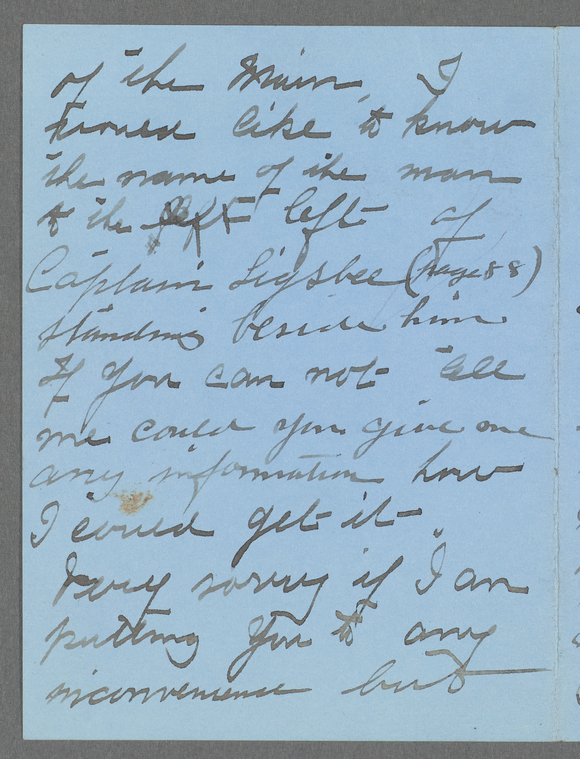 of the Main, I
would like to know
the name of the man
to the left left of
Captain Sigsbee (page 88)
standing beside him
If you can not tell
me could you give me
any information how
I could get it
very sorry if I am
putting you to any
inconvenience but